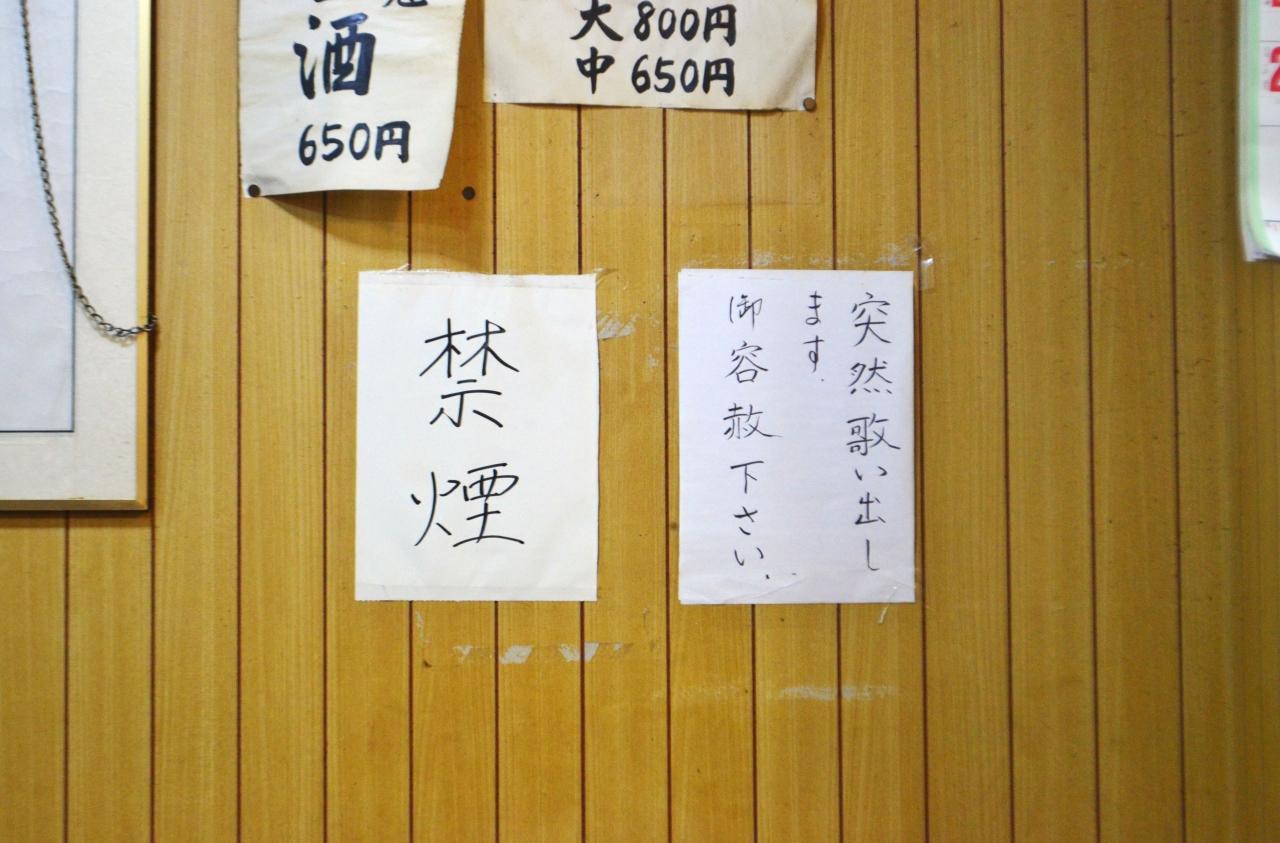 酒
650円
大 800円
中 650円
禁煙
突然歌い出し
ます.
御容赦下さい.